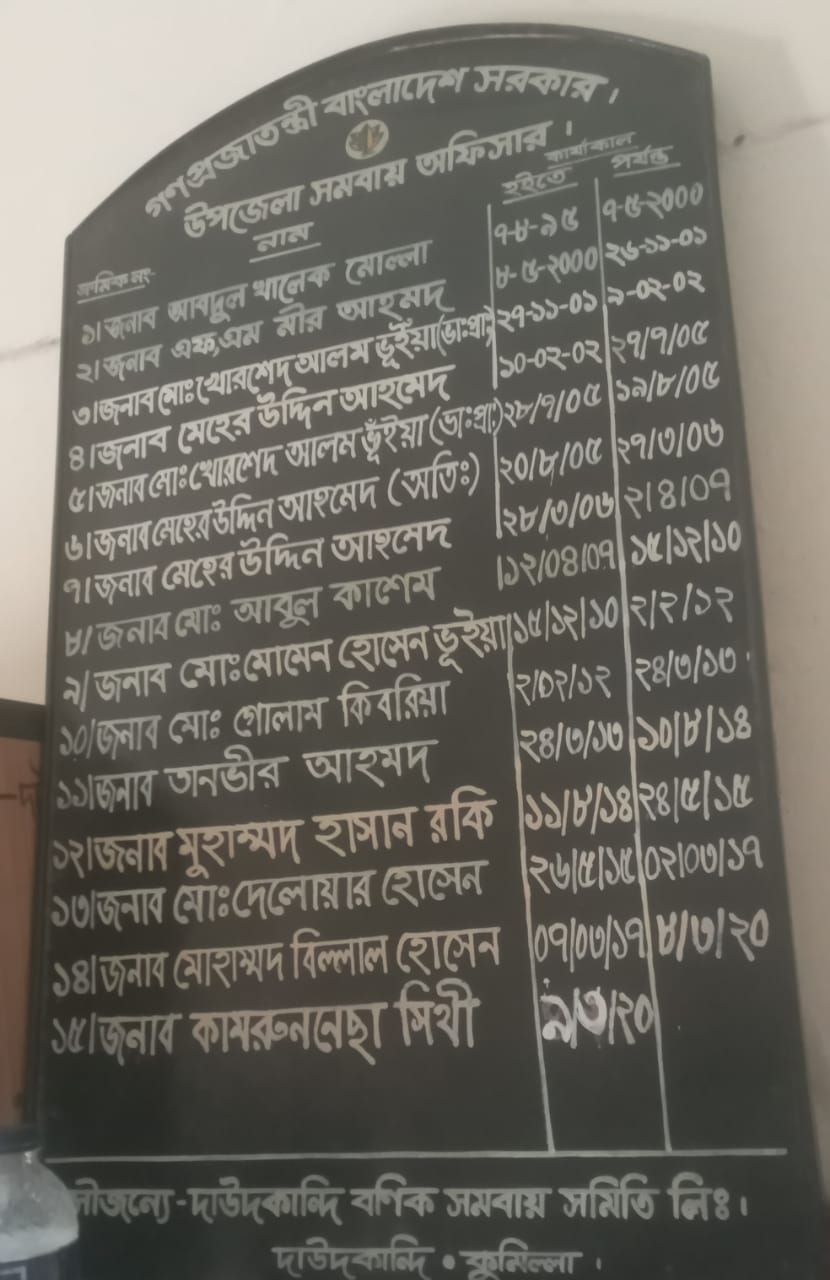 গণপ্রজাতন্ত্রী বাংলাদেশ সরকার।
উপজেলা সমবায় অফিসার।
কার্যকাল
ক্রমিক নং- নাম হইতে পর্যন্ত
১। জনাব আবদুল খালেক মোল্লা ৭-৮-৯৫ ৭-৫-২০০০
২। জনাব এফ,এম মীর আহমদ ৮-৫-২০০০ ২৬-১১-০১
৩। জনাব মোঃ খোরশেদ আলম ভূইঁয়া (ভাঃপ্রাঃ) ২৭-১১-০১ ৯-০২-০২
৪। জনাব মেহের উদ্দিন আহমেদ ১০-০২-০২ ২৭/৭/০৫
৫। জনাব মোঃ খোরশেদ আলম ভূঁইয়া (ভাঃপ্রাঃ) ২৮/৭/০৫ ১৯/৮/০৫
৬। জনাব মেহের উদ্দিন আহমেদ (অতিঃ) ২০/৮/০৫ ২৭/৩/০৬
৭। জনাব মেহের উদ্দিন আহমেদ ২৮/৩/০৬ ২/৪/০৭
৮/ জনাব মোঃ আবুল কাশেম ১২/০৪/০৭ ১৫/১২/১০
৯/ জনাব মোঃ মোমেন হোসেন ভূইয়া ১৫/১২/১০ ২/২/১২
১০/ জনাব মোঃ গোলাম কিবরিয়া ২/০২/১২ ২৪/৩/১৩
১১। জনাব তানভীর আহমদ ২৪/৩/১৩ ১০/৮/১৪
১২। জনাব মুহাম্মদ হাসান রকি ১১/৮/১৪ ২৪/৫/১৫
১৩। জনাব মোঃ দেলোয়ার হোসেন ২৬/৫/১৫ ০২/০৩/১৭
১৪। জনাব মোহাম্মদ বিল্লাল হোসেন ০৭/০৩/১৭ ৮/৩/২০
১৫। জনাব কামরুননেছা সিথী ৯/৩/২০
সৌজন্যে-দাউদকান্দি বণিক সমবায় সমিতি লিঃ।
দাউদকান্দি • কুমিল্লা।